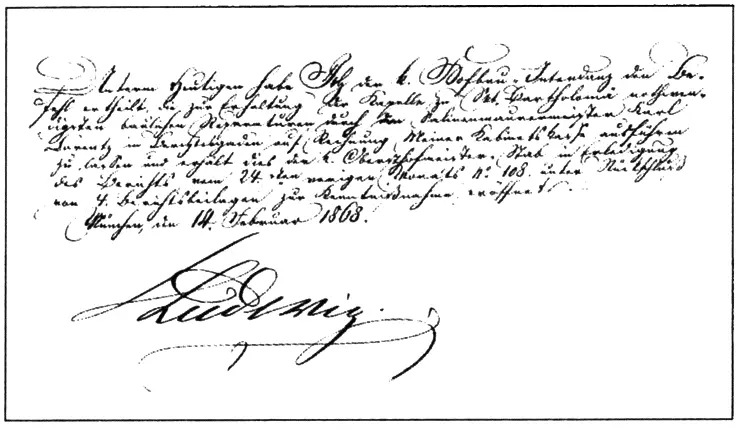 Unterm Heutigen habe Ich der k. Hofbau-Intendanz den Be-
fehl ertheilt, die zur Erhaltung der Kapelle zu Skt. Bartholomä nothwen-
digsten baulichen Reparaturen durch den Salinenmaurermeister Karl
Lorentz in Berchtesgaden auf Rechnung Meiner Kabinetskasse ausführen
zu lassen und erhält dies der k. Obersthofmeister-Stab in Erledigung
des Berichts vom 24. ten vorigen Monats No. 108 unter Rückschluß
von 4. Berichtsbeilagen zur Kenntnißnahme eröffnet.
München, den 14. Februar 1868.
Ludwig.